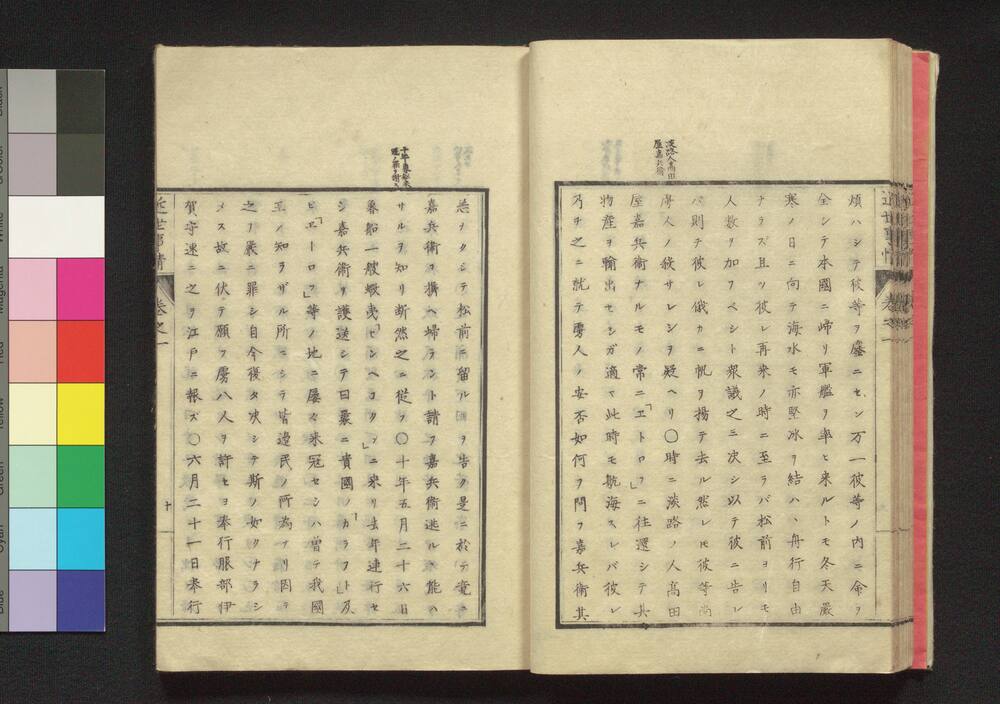 淡路人高田
屋嘉兵衛
煩ハシテ彼等ヲ鏖ニセン万一彼等ノ内ニ命ヲ
全シテ本國ニ帰リ軍艦ヲ率ヒ来ルトモ冬天嚴
寒ノ日ニ向テ海水モ亦堅冰ヲ結ハヽ舟行自由
ナラズ且ツ彼レ再来ノ時ニ至ラバ松前ヨリモ
人数ヲ加フベシト衆議之ニ決シ以テ彼ニ告レ
バ則チ彼レ俄カニ帆ヲ揚テ去ル然レ𪜈彼等尚
虜人ノ殺サレシヲ疑ヘリ〇時ニ淡路ノ人高田
屋嘉兵衛ナルモノ常ニ「エトロフ」ニ往還シテ其
物産ヲ輸出セシガ適〻此時モ航海スレバ彼レ
乃チ之ニ就テ虜人ノ安否如何ヲ問フ嘉兵衛其
近世事情
卷之一
十
十年魯船来
恙ナクシテ松前ニ留ル┃ヲ告ク是ニ於テ竟ニ
嘉兵衛ヲ携ヘ帰ラント請フ嘉兵衛逃ル可能ハ
サルヲ知リ断然之ニ從フ〇十年五月二十六日
魯船一艘蝦夷「センヘコタン」ニ来リ去年連行セ
シ嘉兵衛ヲ護送シテ曰曩ニ貴國ノ「カラフト」及
ヒ「エトロフ」等ノ地ニ屡〻来冦セシハ曽テ我國
王ノ知ラザル所ニシテ皆邊民ノ所為ナリ因テ
之ヲ嚴ニ罪シ自今復タ决シテ斯ノ如クナラシ
メス故ニ伏テ願フ虜八人ヲ許セヨ奉行服部伊
賀守速ニ之ヲ江戸ニ報ズ〇六月二十一日奉行